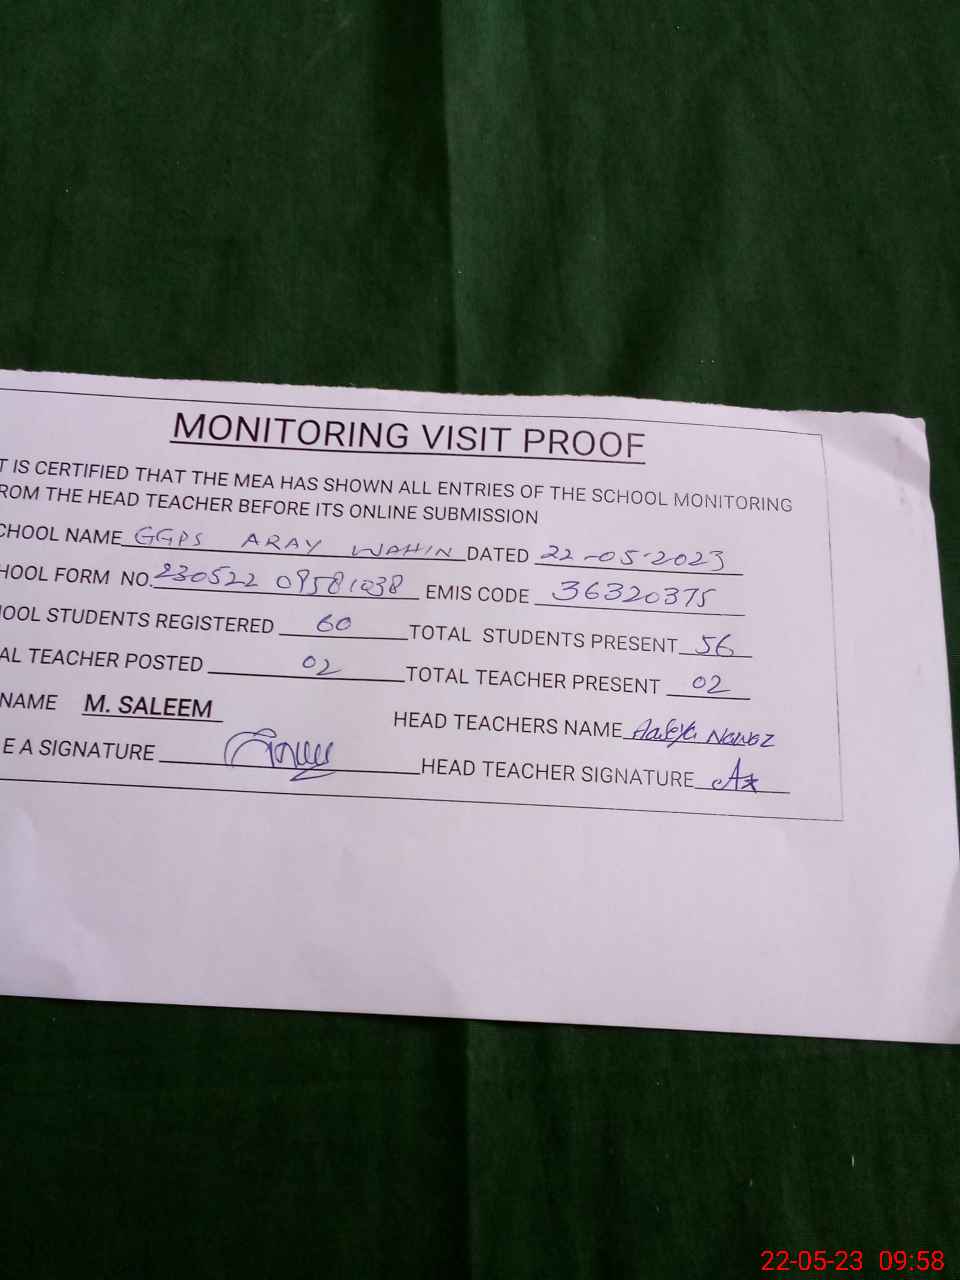 MONITORING VISIT PROOF
T IS CERTIFIED THAT THE MEA HAS SHOWN ALL ENTRIES OF THE SCHOOL MONITORING
ROM THE HEAD TEACHER BEFORE ITS ONLINE SUBMISSION
CHOOL NAME GGPS ARAY WAHIN DATED 22-05-2023
HOOL FORM NO. 230522 09581038 EMIS CODE 36320375
OOL STUDENTS REGISTERED 60 TOTAL STUDENTS PRESENT 56
AL TEACHER POSTED 02 TOTAL TEACHER PRESENT 02
NAME M. SALEEM HEAD TEACHERS NAME Nawaz
E A SIGNATURE HEAD TEACHER SIGNATURE
22-05-23 09:58